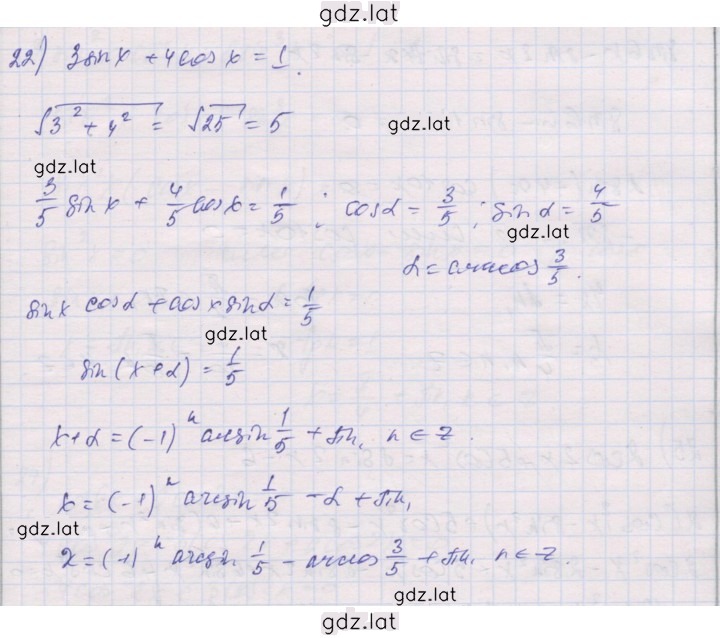 gdz.lat
22) 3sinx + 4cosx = 1.
√(3² + 4²) = √25 = 5
gdz.lat
gdz.lat
3/5 sinx + 4/5 cosx = 1/5; cosα = 3/5; sinα = 4/5
gdz.lat
α = arccos 3/5.
sinx cosα + cosx sinα = 1/5
gdz.lat
sin(x+α) = 1/5
x+α = (-1)ⁿ arcsin 1/5 + πn, n ∈ Z.
x = (-1)ⁿ arcsin 1/5 - α + πn,
gdz.lat
x = (-1)ⁿ arcsin 1/5 - arccos 3/5 + πn, n ∈ Z.
gdz.lat
gdz.lat